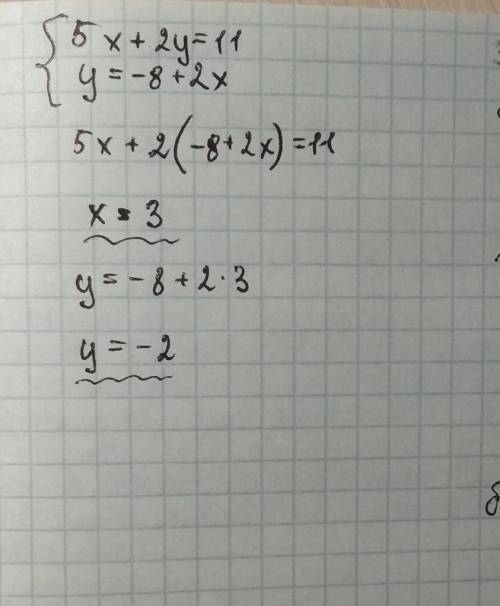 5x + 2y = 11
y = -8 + 2x
5x + 2(-8 + 2x) = 11
x = 3
y = -8 + 2 · 3
y = -2
б